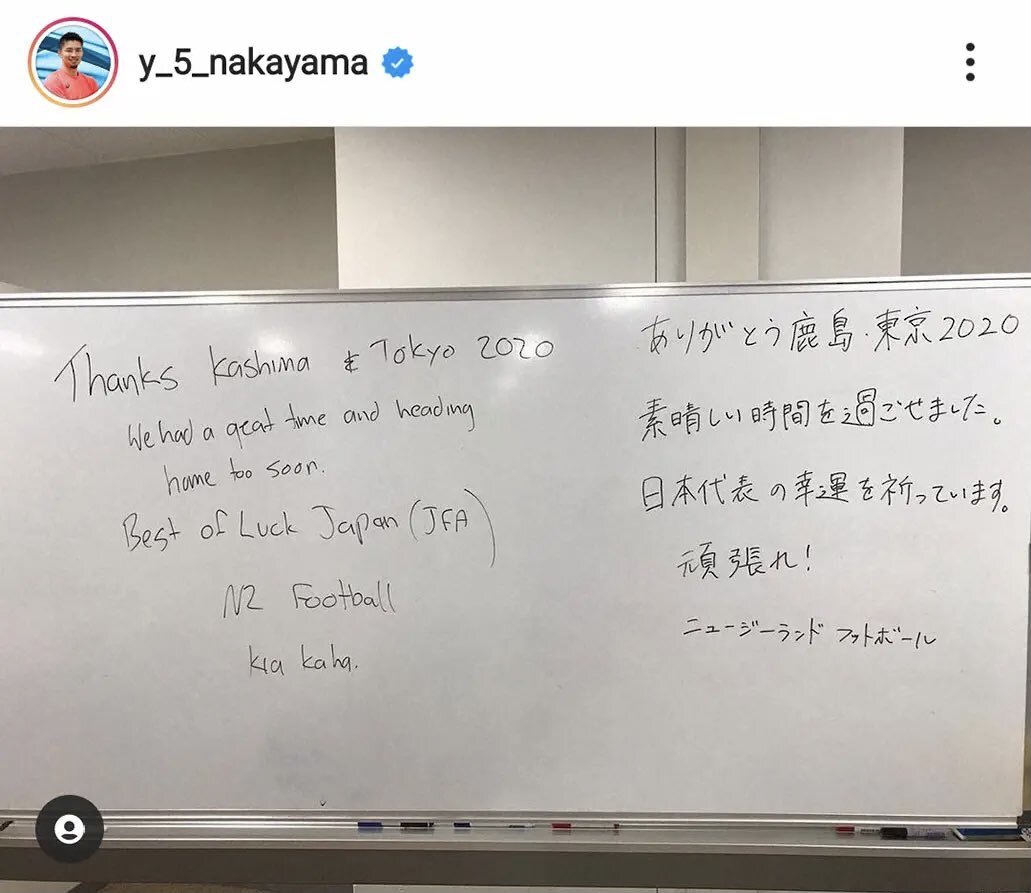 y_5_nakayama
Thanks Kashima & Tokyo 2020
We had a great time and heading
home too soon.
Best of Luck Japan (JFA)
NZ Football
Kia kaha.
ありがとう鹿島・東京2020
素晴しい時間を過ごせました。
日本代表の幸運を祈っています。
頑張れ!
ニュージーランド フットボール